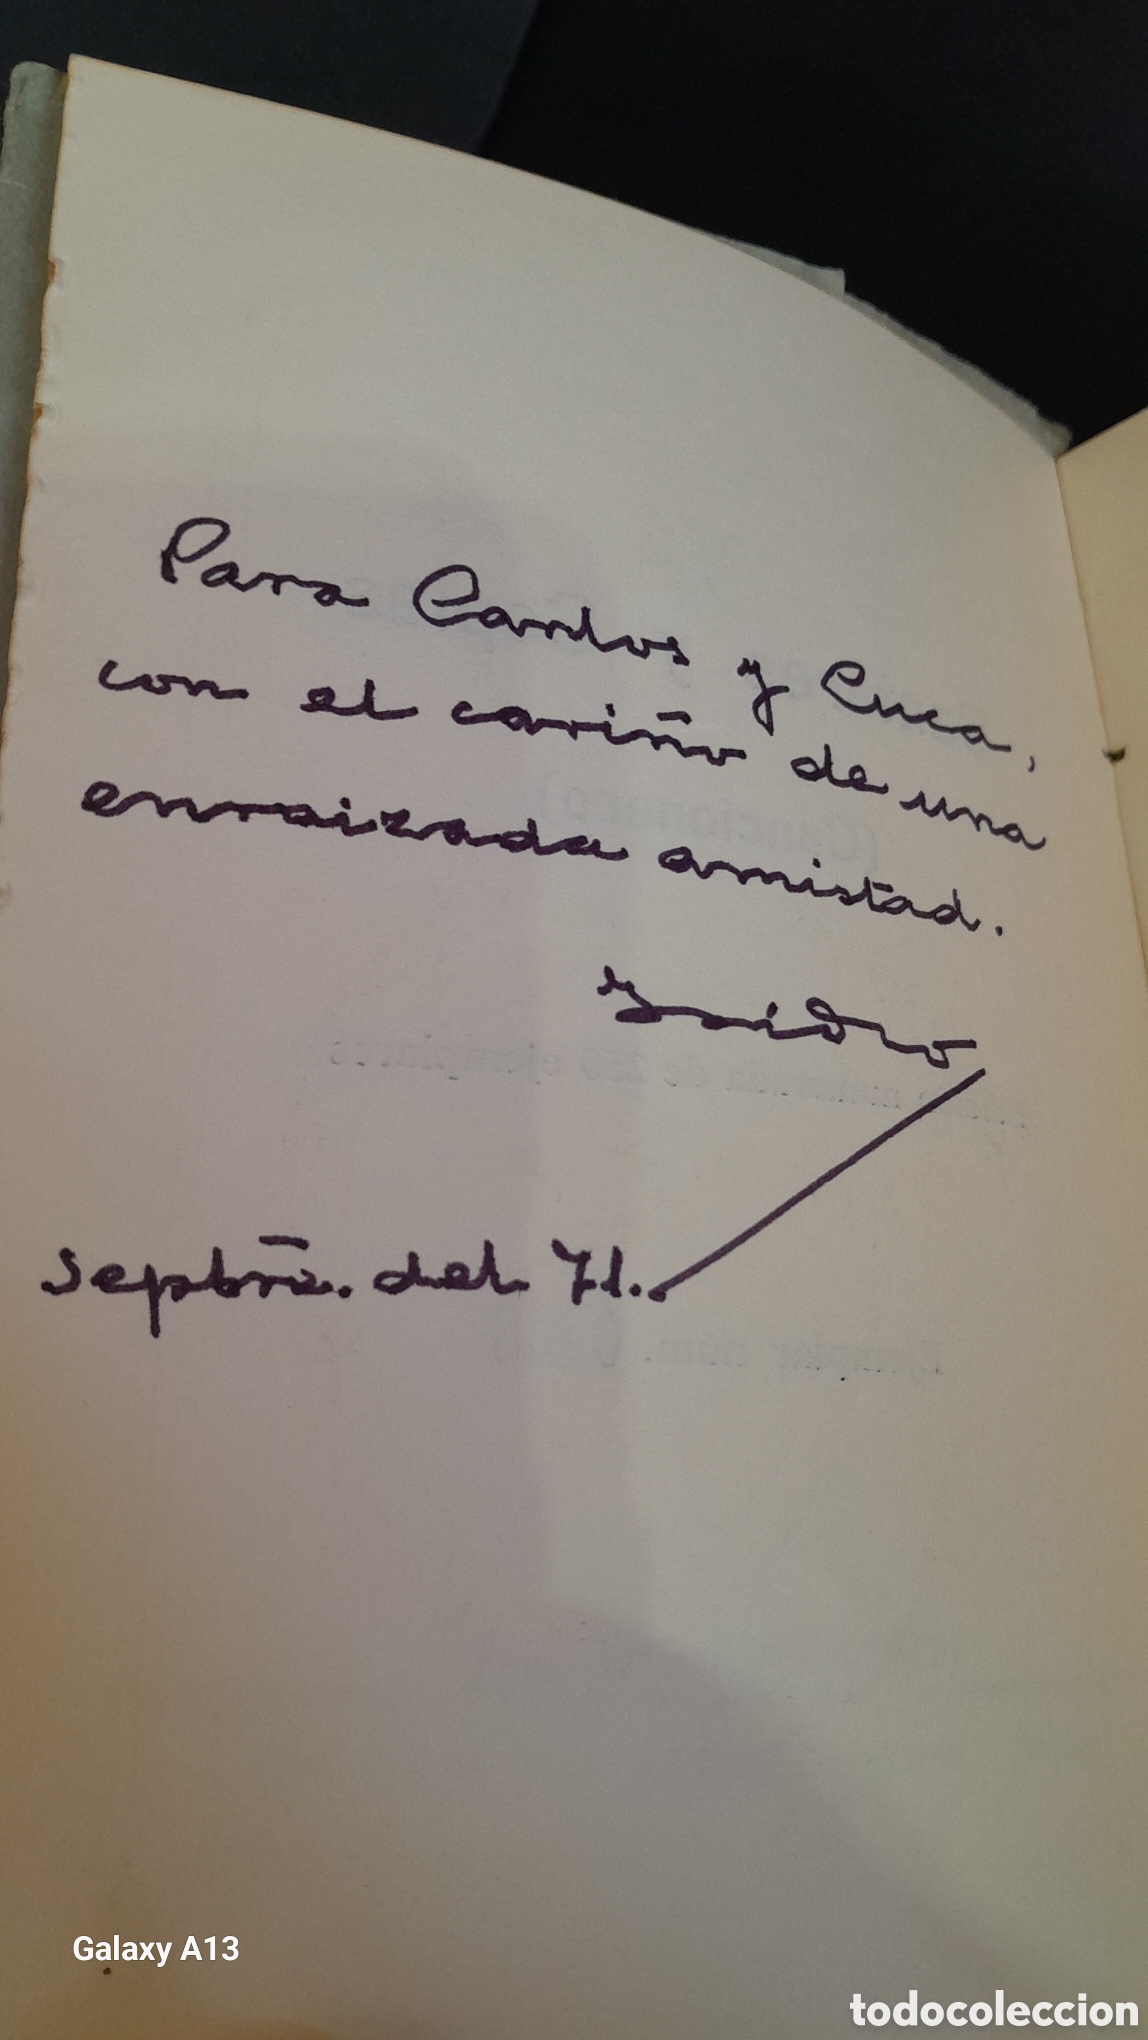 Para Carlos y Cuca,
con el cariño de una
enraizada amistad.
Ysidro
Sepbre. del 71.
Galaxy A13
todocoleccion